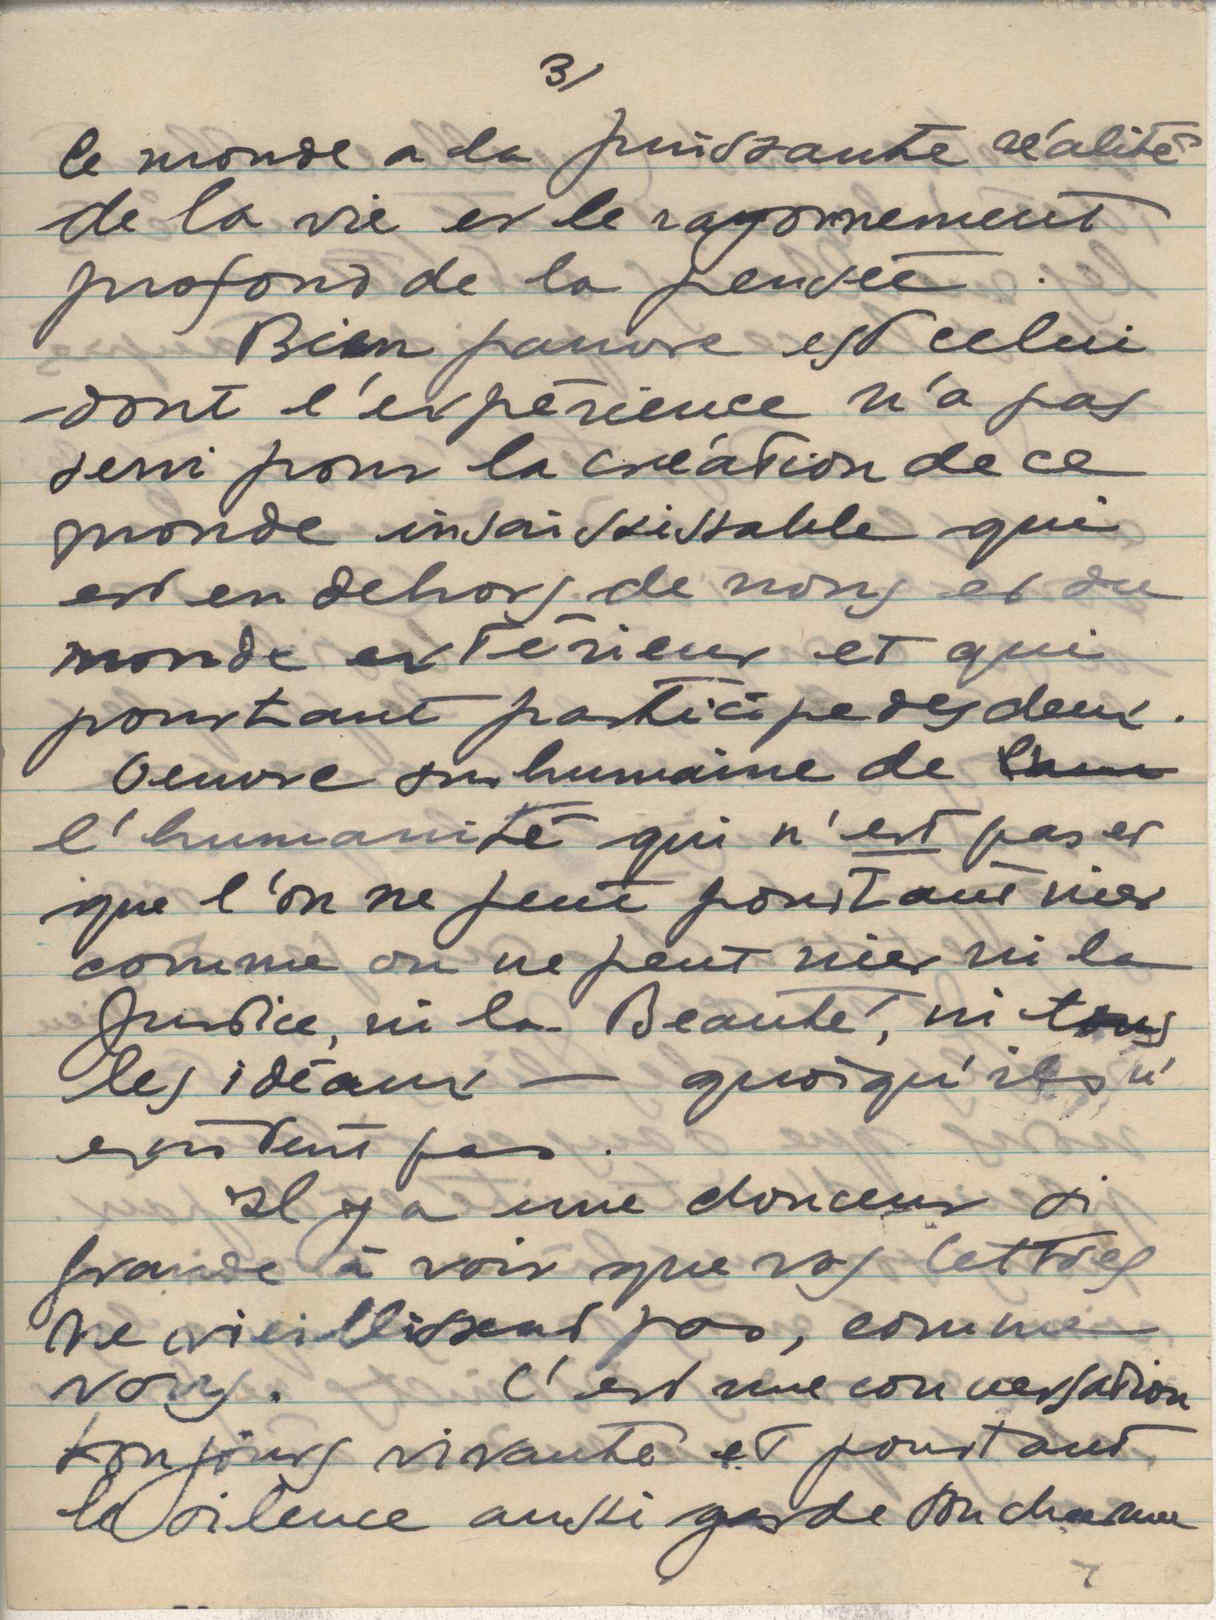 3/
le monde a la puissante réalité
de la vie et le rayonnement
profond de la pensée.
Bien pauvre est celui
dont l'expérience n'a pas
servi pour la création de ce
monde insaisissable qui
est en dehors de nous et du
monde extérieur et qui
pourtant participe des deux.
Oeuvre surhumaine de
l'humanité qui n'est pas et
que l'on ne peut pourtant nier
comme on ne peut nier ni la
Justice, ni la Beauté, ni tous
les idéaux — quoiqu'ils n'
existent pas.
Il y a une douceur si
grande à voir que vos lettres
ne vieillissent pas, comme
vous. C'est une conversation
toujours vivante et pourtant
le silence aussi garde son charme